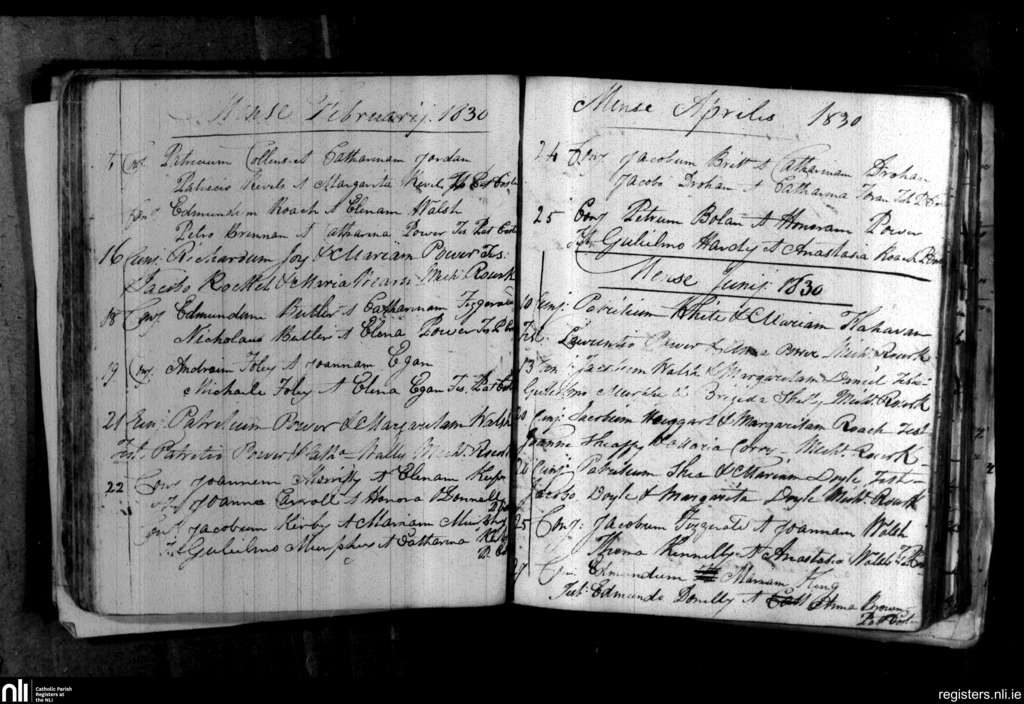 Mense Februarij. 1830
Petruum Collens et Catharinam Jordan
Patricio Revels et Margarita Revel
Conj Edmundum Roach et Elenam Walsh
Petro Brennan et Catharina Power Tes Pat
16 Conj: Richardum Joy & Mariam Power Tes:
Jacobo Rocket & Maria Michl. Rourk
18 Conj Edmundum Butler et Catharinam Fizgerald
Nicholaus Butler et Elena Power
19 Conj Andream Foley et Joannam Egan
Michaele Foley et Elena Egan Tes. Pat
21 Conj: Patritium Power & Margaritam Walsh
Test Patritio Power & Nally Michl. Rourk
22 Conj Joannem et Elenam
Joanna Carroll et Honora Donnelly
Conj Jacobum Kirby et Mariam Murphy
Gulielmo Murphy et Catharina
Mense Aprilis 1830
24 Conj Jacobum Britt et Catharinam Drohan
Jacobo Drohan et Catharina
25 Conj Petrum Bolan et Honoram Power
Tes Gulielmo Hardy et Anastasia Roach
Mense Junij 1830
10 Conj: Patritium White & Mariam Kahavan
Test. Laurentio Power & Anna Michl. Rourk
13 Conj: Jacobum Walsh & Margaritam Daniel Test
Gulielmo & Brigida Michl. Rourk
Conj: Jacobum Haggart & Margaritam Roach Test
& Maria Michl Rourk
24 Conj: Patritium Shea & Mariam Doyle Test
Jacobo Doyle & Margarita Doyle Michl. Rourk
25 Conj: Jacobum Fizgerald et Joannam Walsh
Thoma Kennelly et Anastasia Walsh
27 Conj Edmundum Mariam King
Test: Edmundo Donelly et Anna Brown
nli
Catholic Parish
Registers at
the NLI
registers.nli.ie